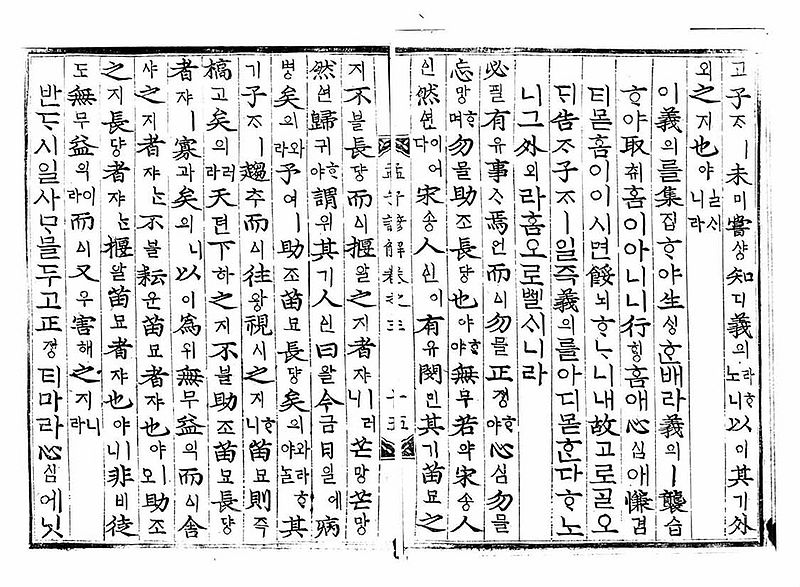 고子ᄌᆞㅣ未미嘗샹知디義의라ᄒᆞ노니以이其기外
외之지也야ㅣㄹᄉᆡ니라
이義의를集집ᄒᆞ야生ᄉᆡᆼᄒᆞᆫ배라義의ㅣ襲습
ᄒᆞ야取ᄎᆔ홈이아니니行ᄒᆡᆼ홈애心심애慊겸
티몯홈이이시면餒뇌ᄒᆞᄂᆞ니내故고로ᄀᆞᆯ오
ᄃᆡ告고子ᄌᆞㅣ일즉義의를아디몯ᄒᆞᆫ다ᄒᆞ노
니그外외라홈오로ᄡᅥᆯᄉᆡ니라
必필有유事ᄉᆞ焉언而이勿믈正졍ᄒᆞ야心심勿믈
忘망ᄒᆞ며勿믈助조長댱也야ᄒᆞ야無무若약宋송人
인然연이어다宋송人인이有유閔민其기苗묘之
孟子諺解卷之三 十五
지不블長댱而이揠알之지者쟈ㅣ러니芒망芒망
然연歸귀ᄒᆞ야謂위其기人인曰왈今금日일에病
병矣의와라予여ㅣ助조苗묘長댱矣의와라ᄒᆞ야ᄂᆞᆯ其
기子ᄌᆞㅣ趨추而이往왕視시之지ᄒᆞ니苗묘則즉
槁고矣의러라天텬下하之지不블助조苗묘長댱
者쟈ㅣ寡과矣의니以이爲위無무益익而이舍
샤之지者쟈ᄂᆞᆫ不블耘운苗묘者쟈也야ㅣ오助조
之지長댱者쟈ᄂᆞᆫ揠알苗묘者쟈也야ㅣ니非비徒
도無무益익이라而이又우害해之지니라
반ᄃᆞ시일사ᄆᆞᆷ믈두고正졍티마라心심에닛